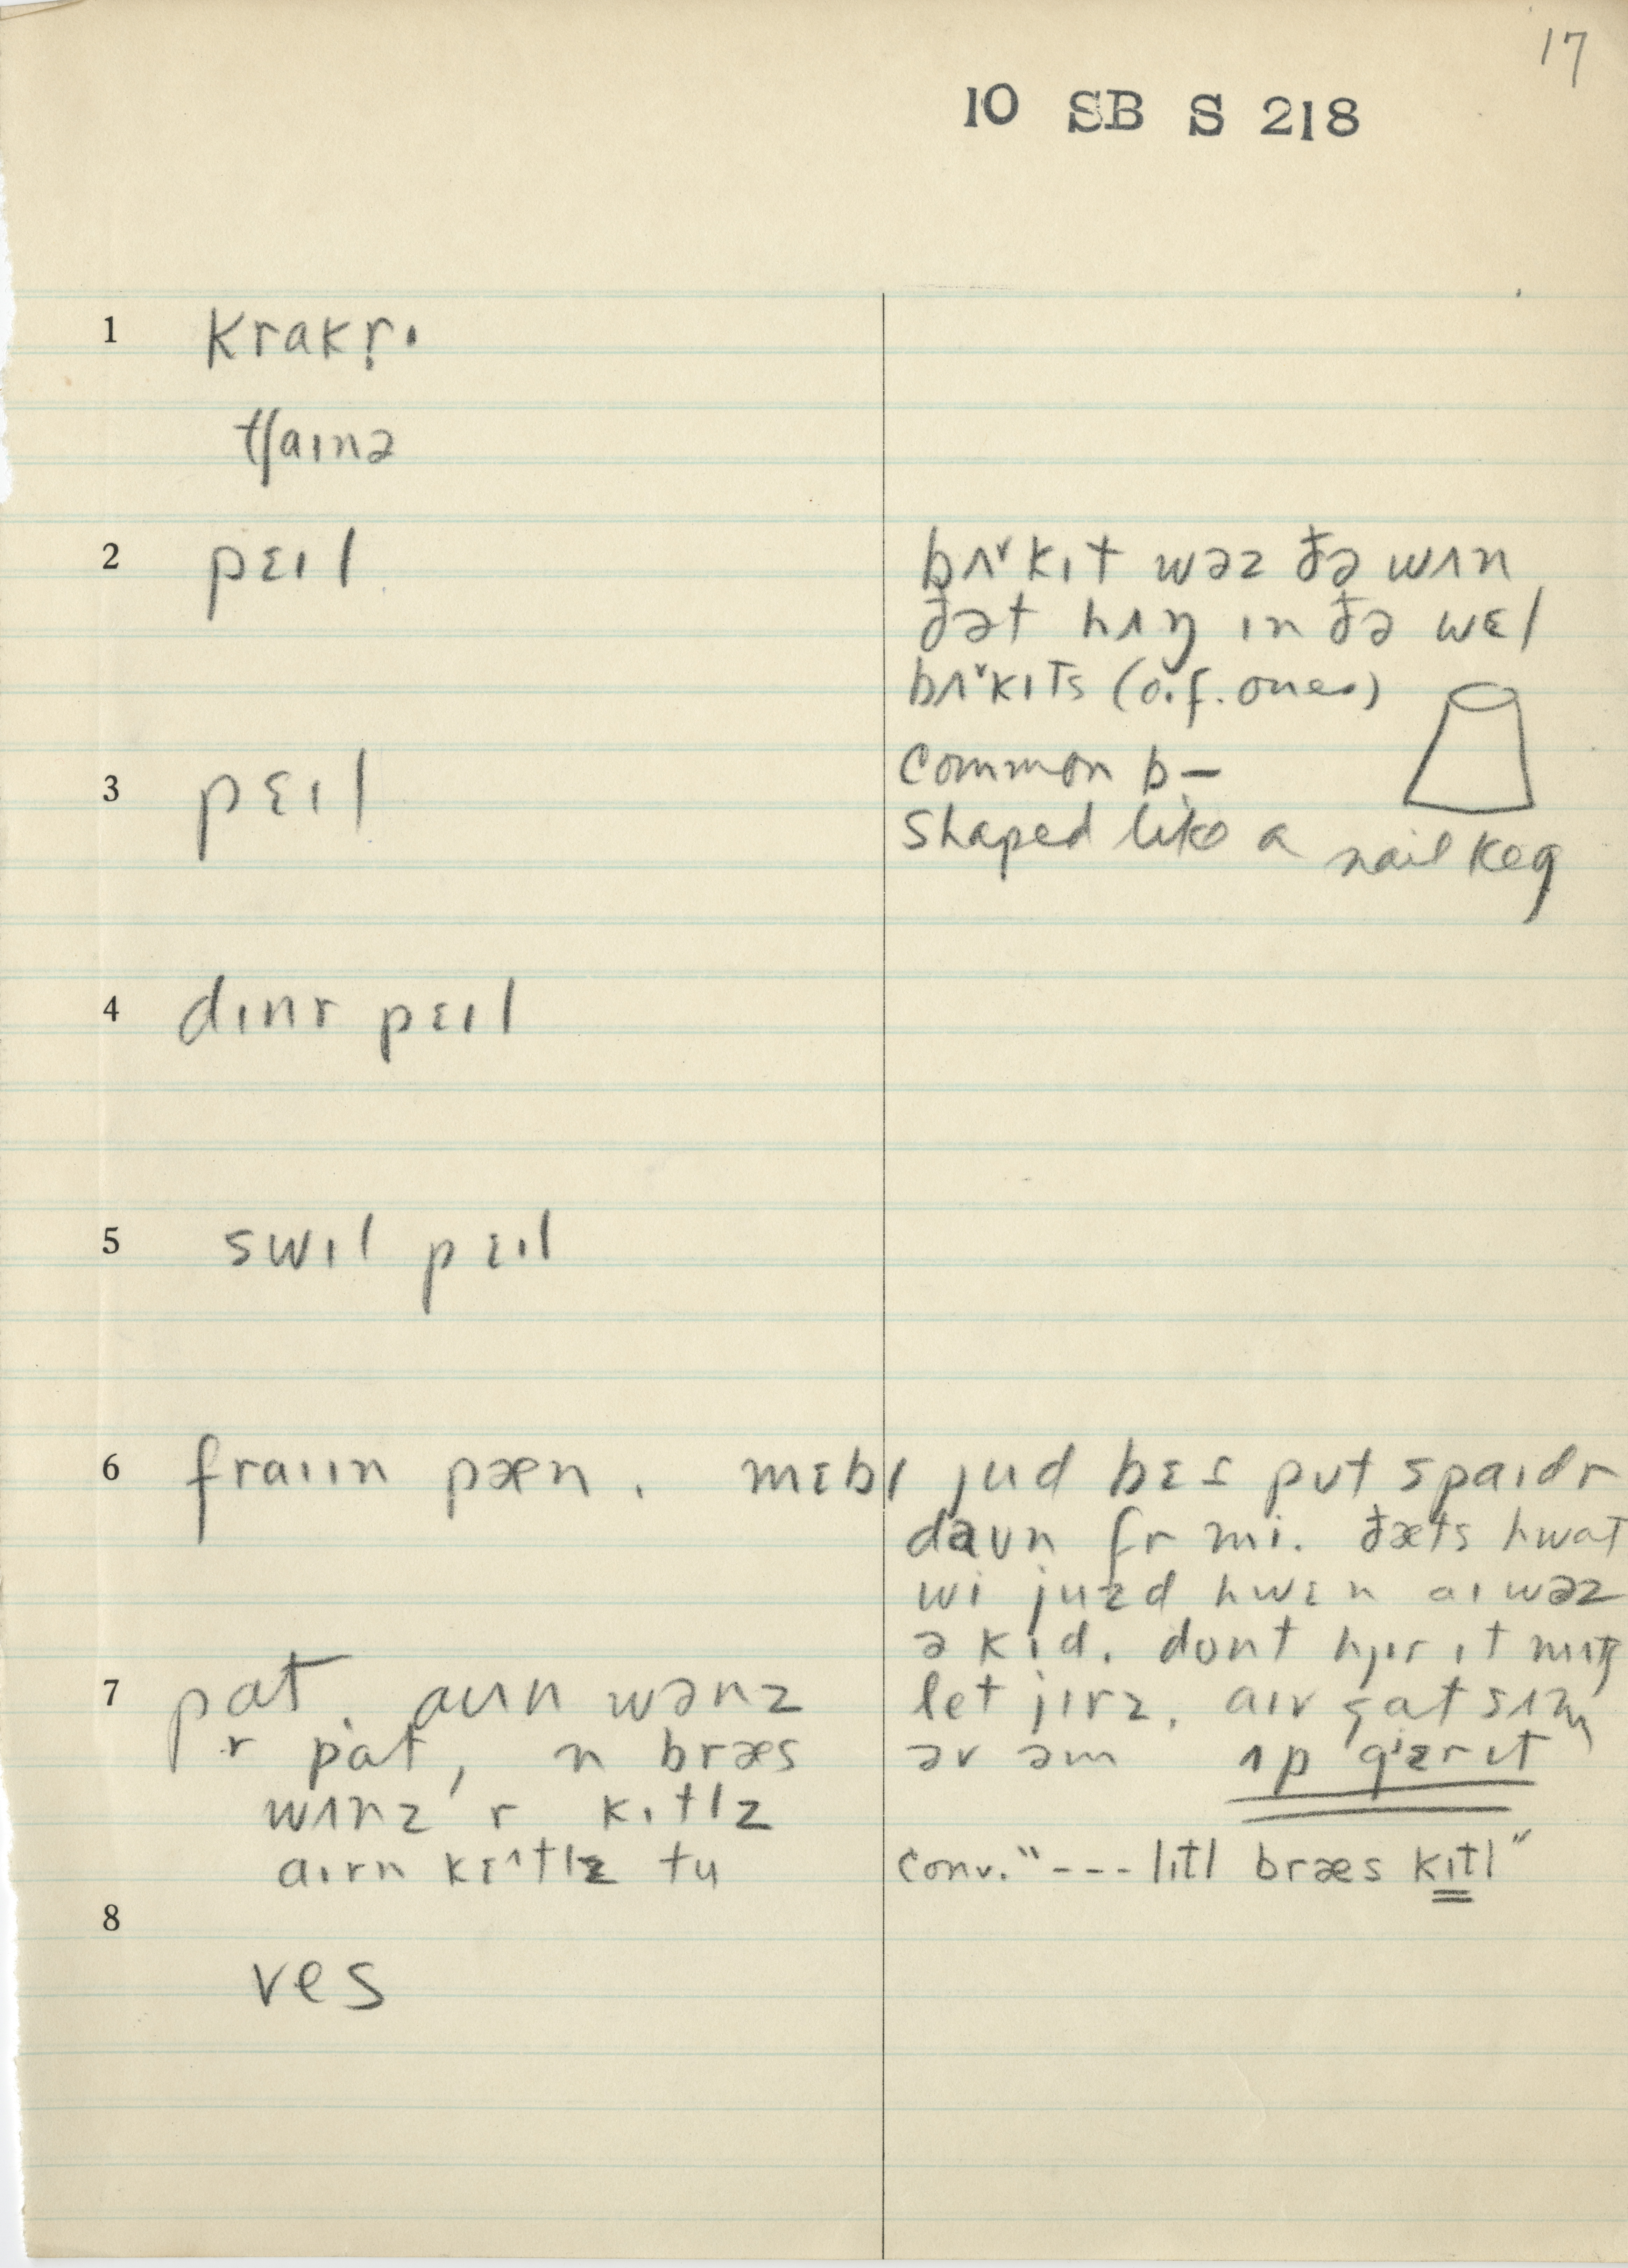 17
10 SB S 218
1 krakr̩ɪ
tʃaɪnə
2 pɛɪl
bʌ˅kɪt wəz ðə wʌn
ðət hʌŋ ɪn ðə wɛl
bʌ˅kɪts (o.f. ones)
3 pɛɪl
Common b—
shaped like a nail keg
4 dɪnr pɛɪl
5 swɪl pɛɪl
6 fraɪɪn pæn. mɛbɪ jud bɛs pʊt spaɪdr
daʊn fr mi. ðæts hwat
wi juzd hwɛn aɪ wəz
ə kɪd. dont hjɪr ɪt
let jɪrz. aɪv
əv əm ʌp
7 pat. wənz
r pat, n bræs
wʌnz r kɪtlz
aɪrn kɛ^tlz tu
conv. "--- lɪtl bræs kɪtl"
8
ves